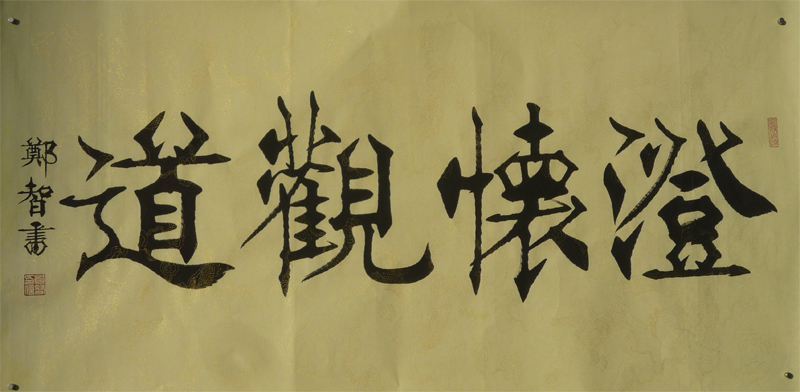 澄懷觀道
鄭智書